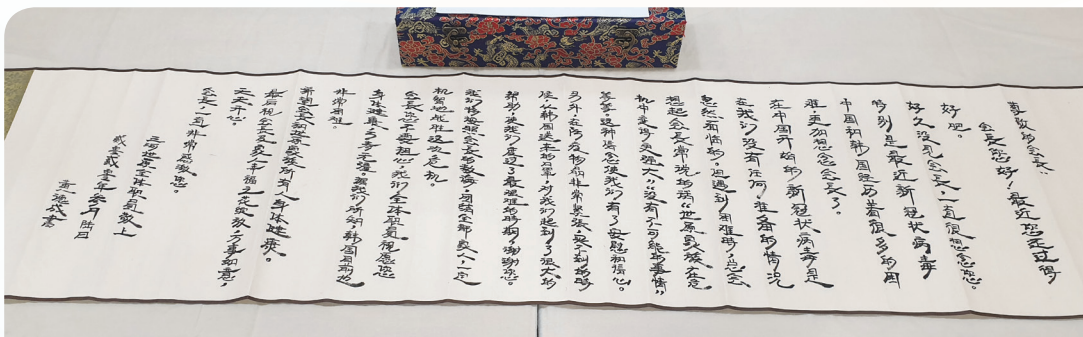 尊敬的会长:
会长您好!最近您还过得
好吧。
好久没见会长,一直很想念您。
特别是最近新冠状病毒
中国和韩国经历着很多的困
难更加想念会长了。
在中国开始的新冠状病毒是
在我们没有任何准备的情况
忽然面临的。因遇到困难时,总会
想起会长常说的病"世原员族在危
机中变得更强大","没有了可能的事情"
等等。这种信念使我们有了安慰和信心。
另外,在防疫物病非常紧张,买不到的时
候,从韩国送来的口罩,对我们起到了很大的
帮助,使我们度过了最艰难的时期,谢谢您。
我们将按照会长的教诲,团结全部家人,一定
机智地战胜这次危机。
会长您不要担心,我们全体职员祝愿您
身体健康,万事无恙。据我们所知,韩国目前也
非常困难。
希望会长和世原员族所有人身体健康。
最后祝会长及家人幸福
万事如意,
天天开心。
会长,一直非常感谢您。
全体职员敬上
贰零贰零年